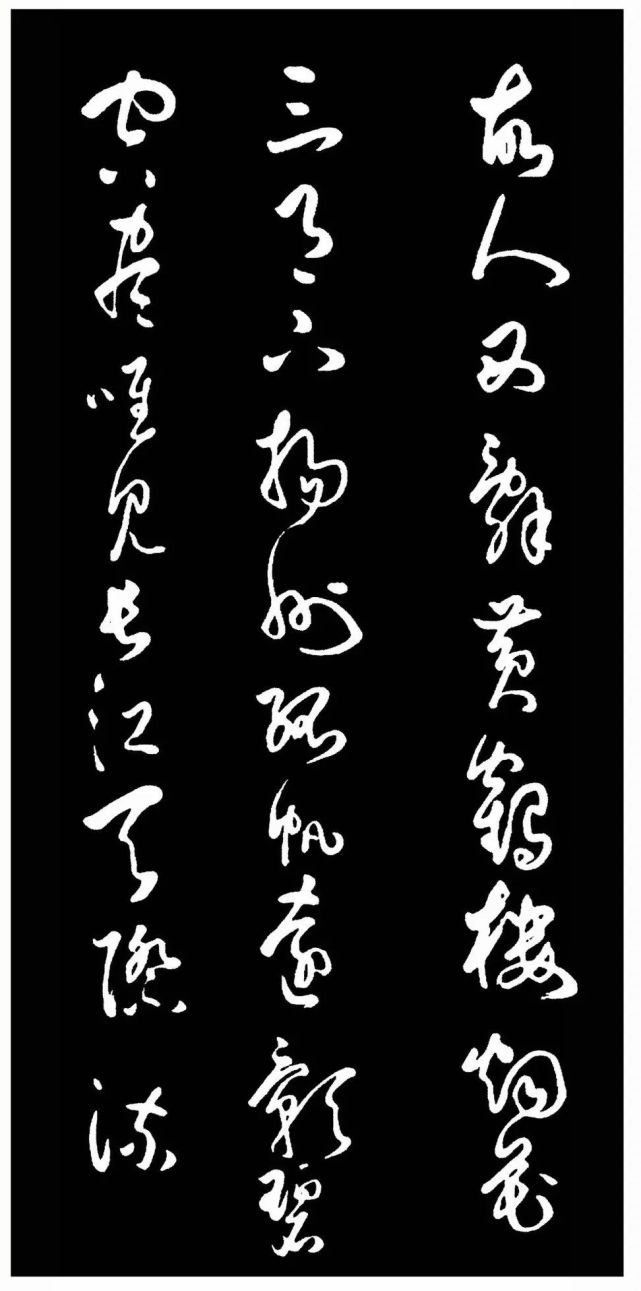 故人西辭黃鶴樓烟花
三月下揚州孤帆遠影碧
空盡唯見長江天際流